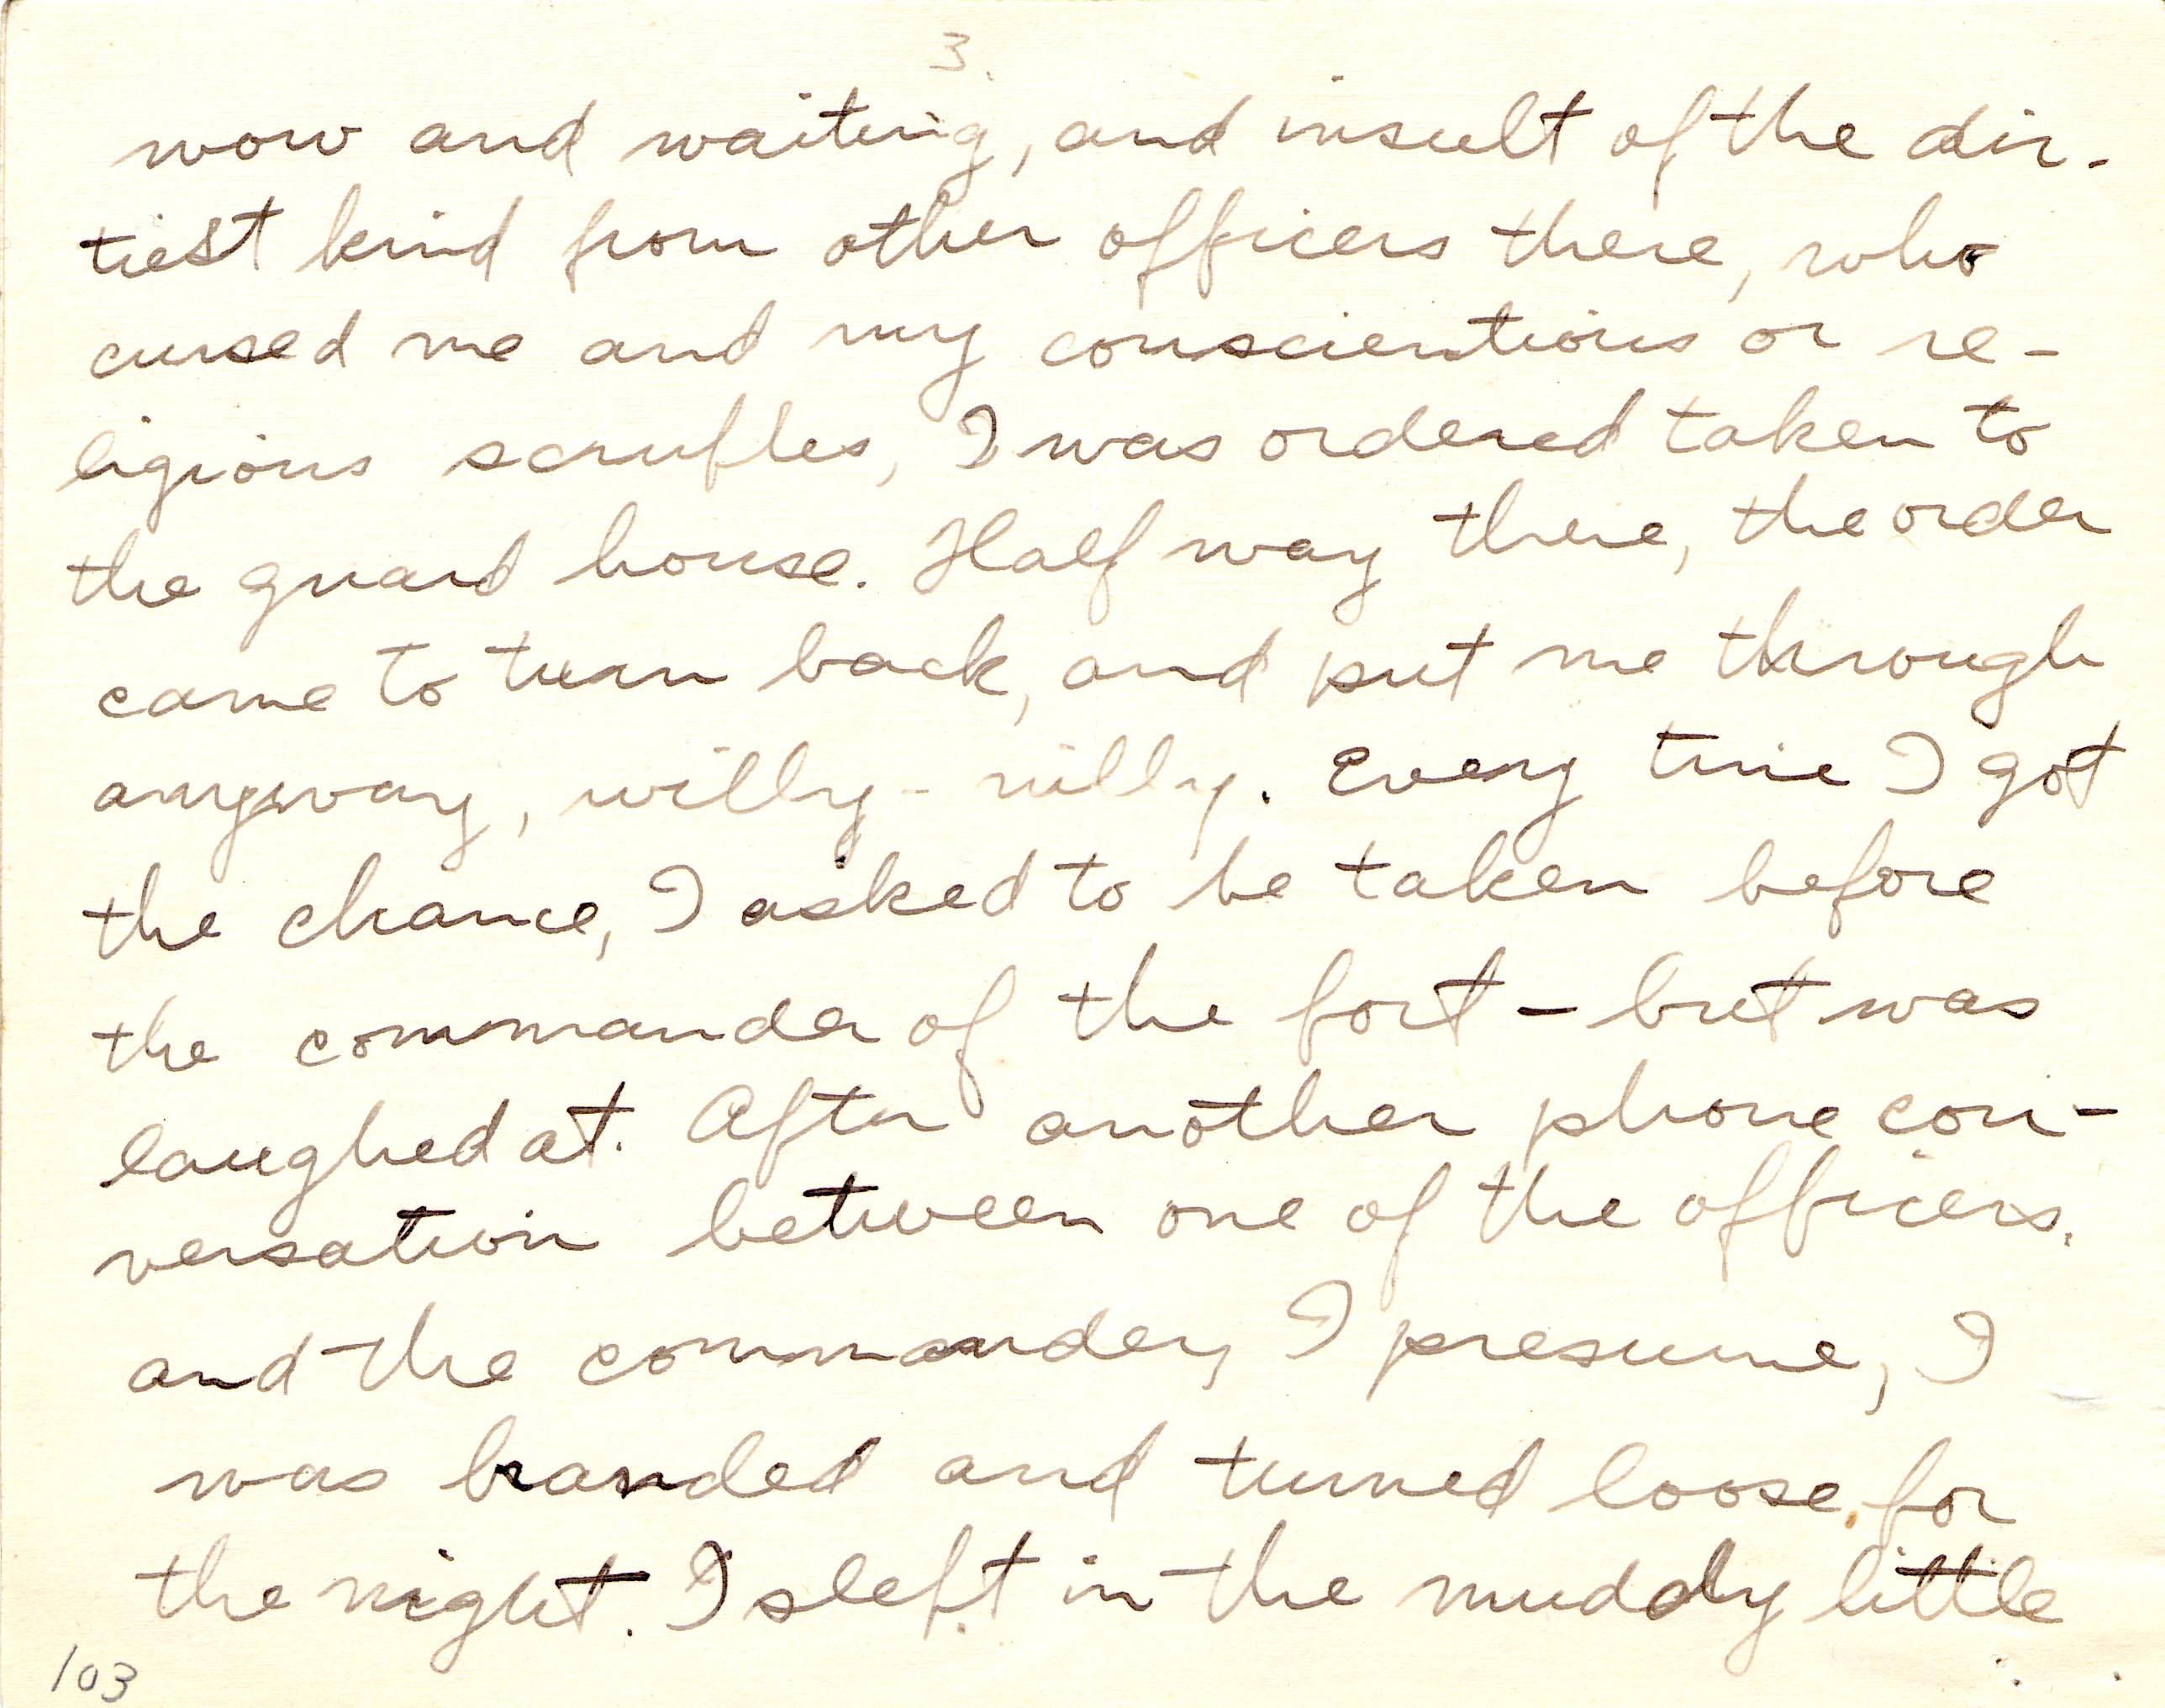 3.
wow and waiting, and insult of the dir-
tiest kind from other officers there, who
cursed me and my conscientious or re-
ligious scruples, I was ordered taken to
the guard house. Half way there, the order
came to turn back, and put me through
anyway, willy-nilly. Every time I got
the chance, I asked to be taken before
the commander of the fort - but was
laughed at. After another phone con-
versation between one of the officers,
and the commander, I presume, I
was branded and turned loose for
the night. I slept in the muddy little
103